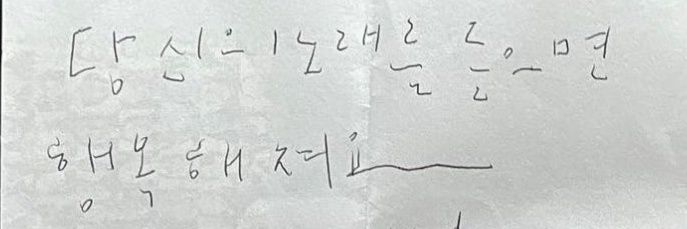 당신의 노래를 들으면
행복해져요